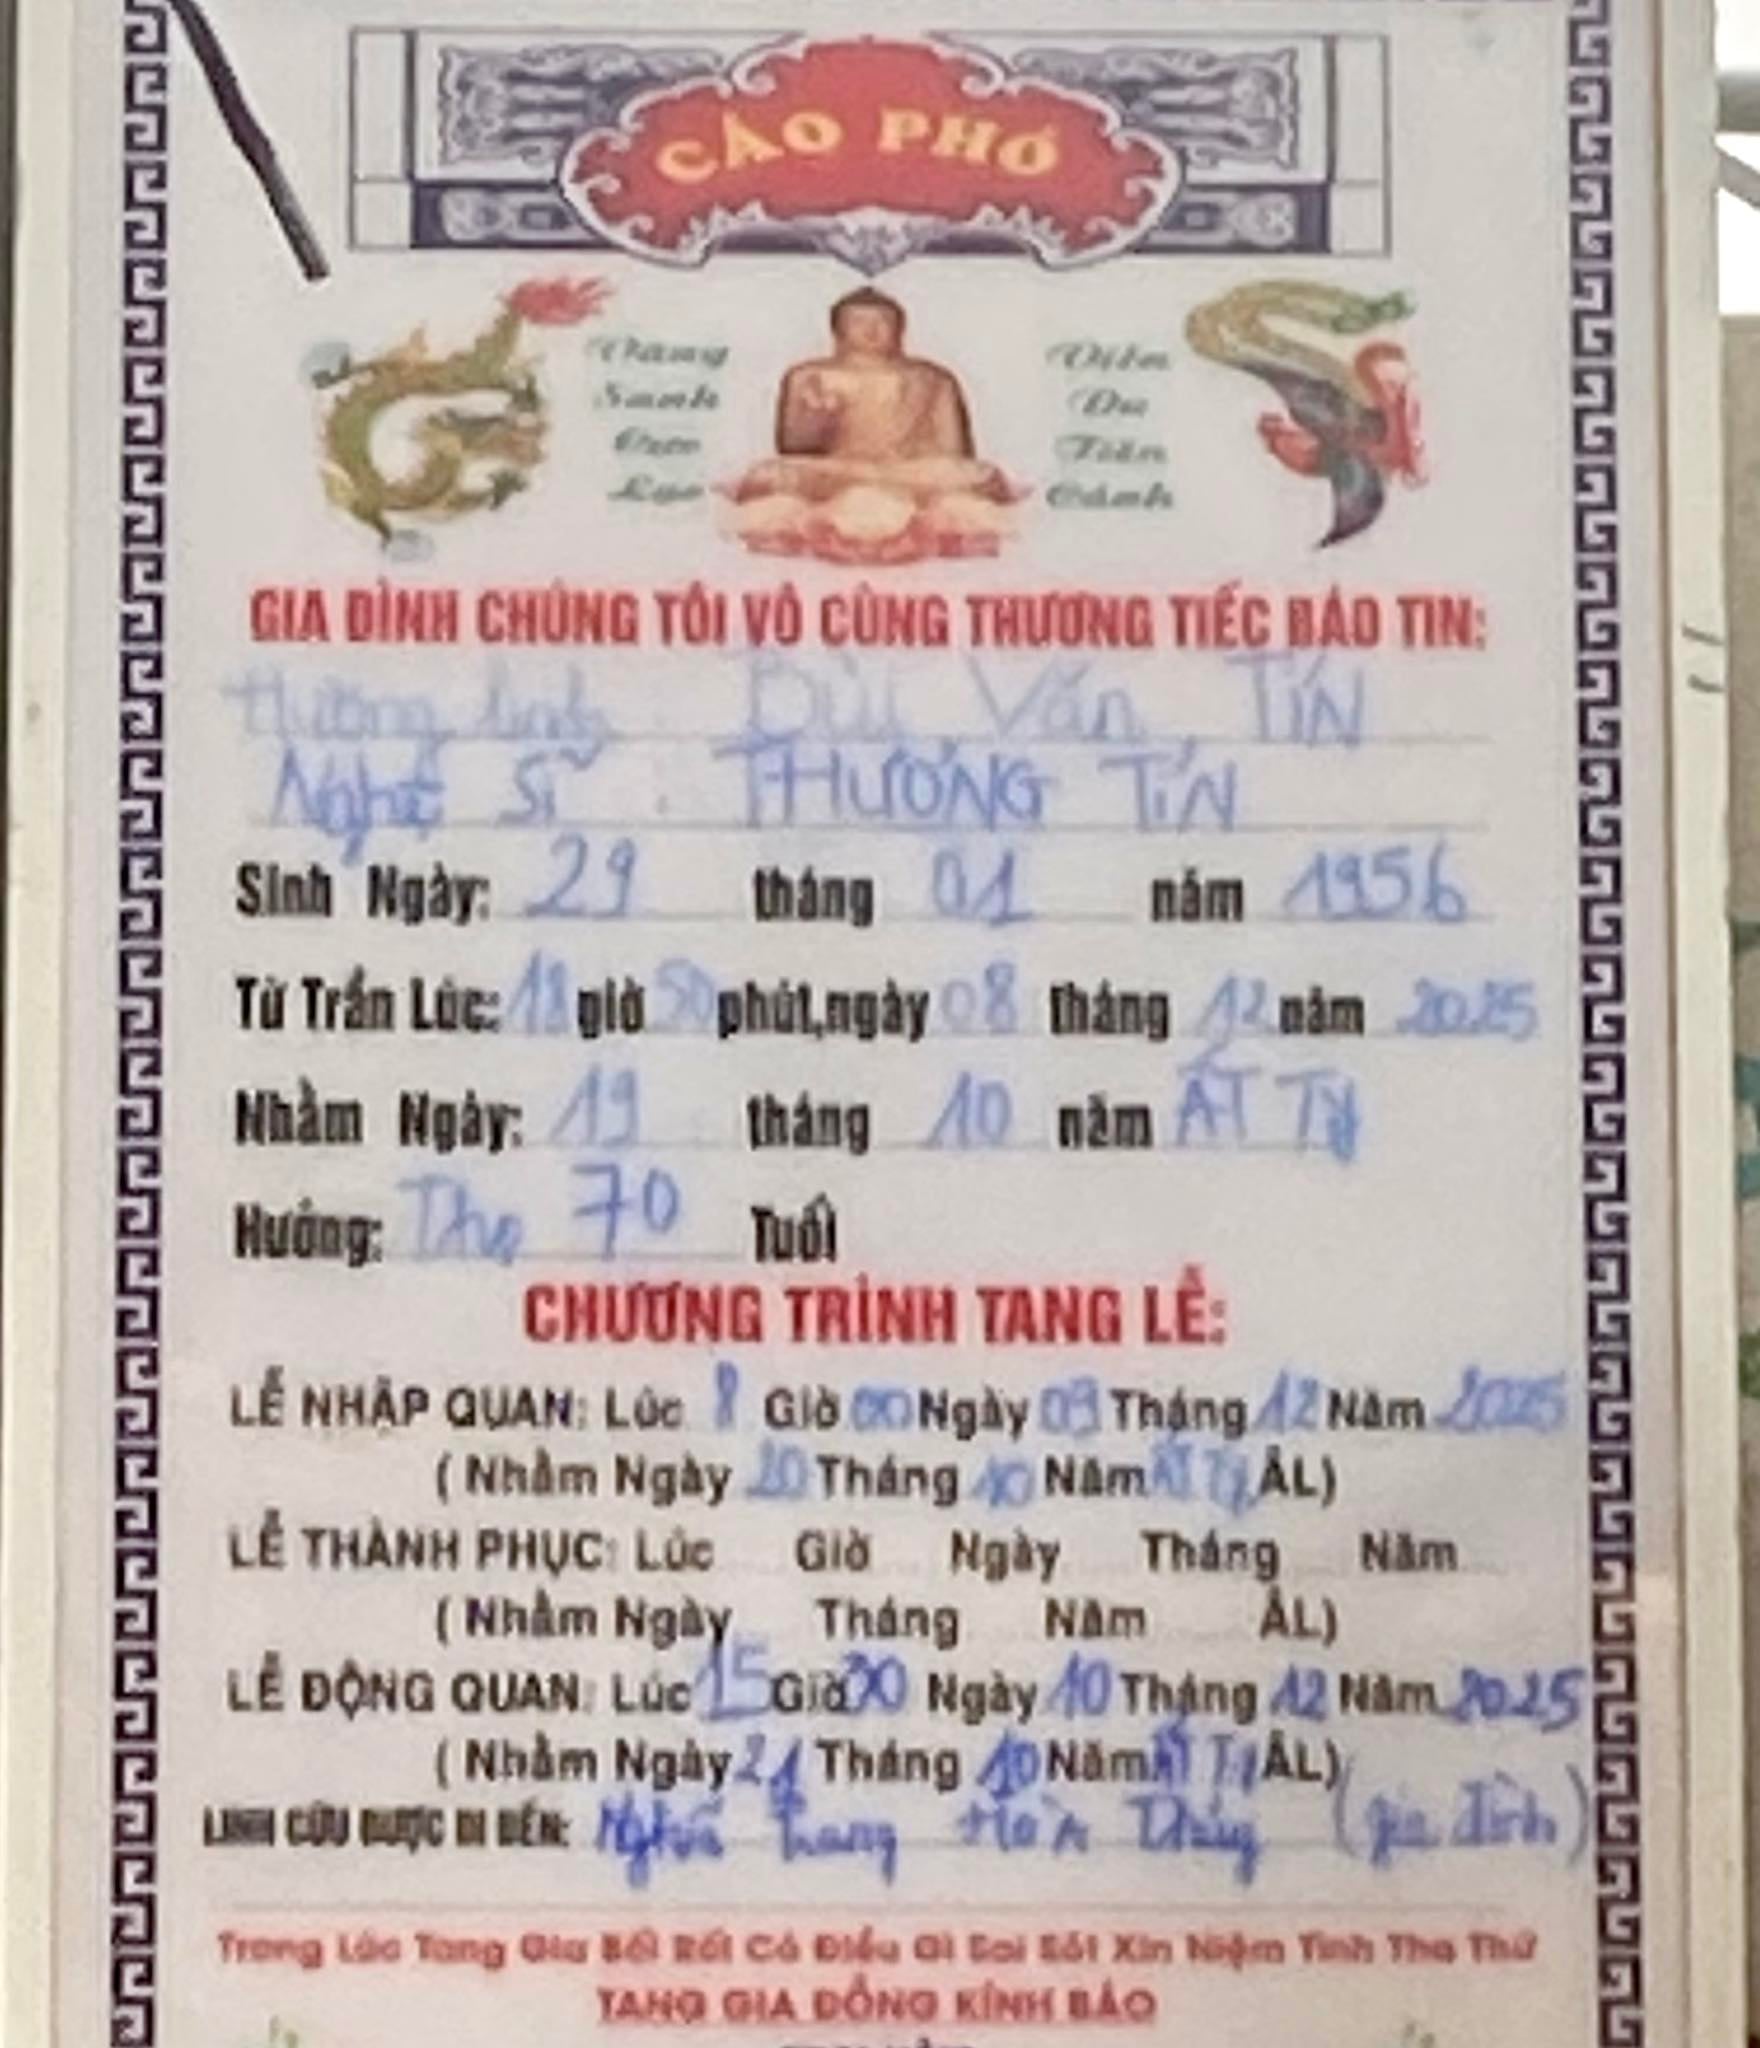 CÁO PHÓ
Vãng
Sanh
Cực
Lạc
Viên
Du
Tiên
Cảnh
GIA ĐÌNH CHÚNG TÔI VÔ CÙNG THƯƠNG TIẾC BÁO TIN:
Hương linh Bùi Văn TÍN
Nghệ Sĩ THƯƠNG TÍN
Sinh Ngày: 29 tháng 01 năm 1956
Từ Trần Lúc: 18 giờ 50 phút, ngày 08 tháng 12 năm 2025
Nhằm Ngày: 19 tháng 10 năm ẤT TỴ
Hưởng: Thọ 70 Tuổi
CHƯƠNG TRÌNH TANG LỄ:
LỄ NHẬP QUAN: Lúc 8 Giờ 00 Ngày 09 Tháng 12 Năm 2025
( Nhằm Ngày 20 Tháng 10 Năm ẤT Tỵ ÂL)
LỄ THÀNH PHỤC: Lúc Giờ Ngày Tháng Năm
( Nhằm Ngày Tháng Năm ÂL)
LỄ ĐỘNG QUAN: Lúc 15 Giờ 30 Ngày 10 Tháng 12 Năm 2025
( Nhằm Ngày 21 Tháng 10 Năm ẤT Tỵ ÂL)
LINH CỮU ĐƯỢC DI ĐẾN: Nghĩa Trang Hòn Thúng (gia đình)
Trong Lúc Tang Gia Bối Rối Có Điều Gì Sai Sót Xin Niệm Tình Tha Thứ
TANG GIA ĐỒNG KÍNH BÁO